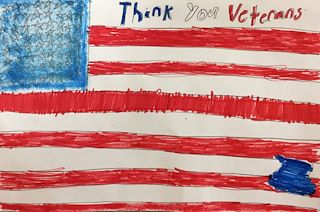 Think You Veterans